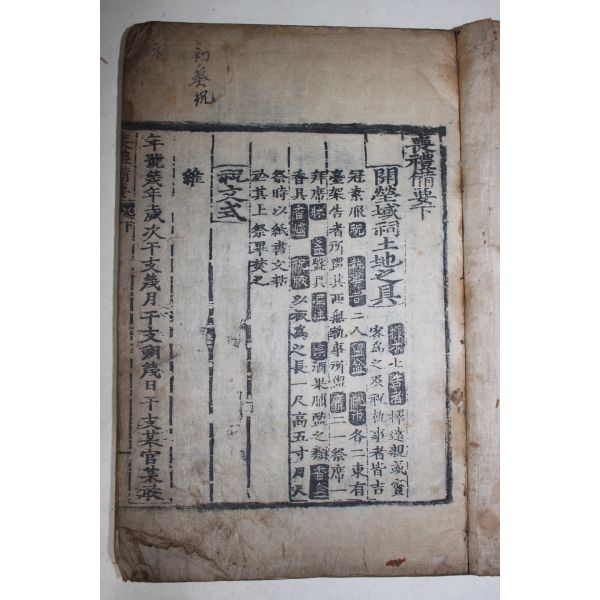 初葬祝
喪禮備要下
開塋域祠土地之具
標木七告者擇遠親或賓
客爲之及祝執事者皆吉
冠素服祝執事者二人盥盆帨巾各二東有
臺架告者所盥其西無執事所盥席二一祭席一
拜席牀盞盤具酒注饌酒果脯醢之類香盒
香具香爐祝版以板爲之長一尺高五寸周尺
祭時以紙書文粘
於其上祭畢焚之
祝文式
維
年號幾年歲次干支幾月干支朔幾日干支某官某敢
喪禮備要 下